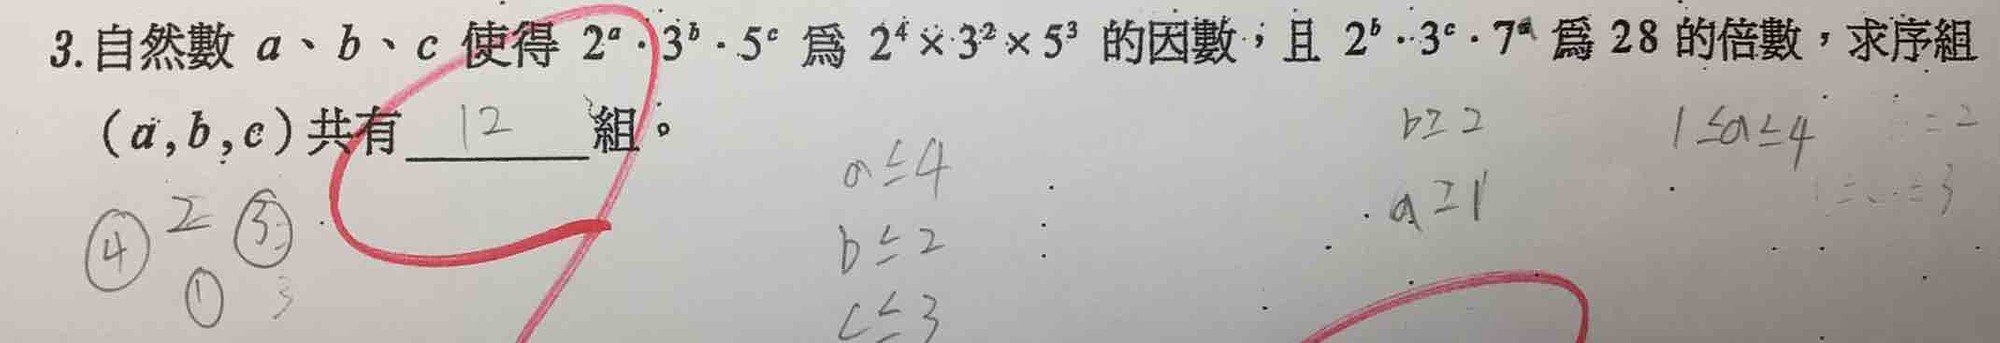 3.自然數 a、b、c 使得 2ᵃ·3ᵇ·5ᶜ 爲 2⁴×3²×5³ 的因數；且 2ᵇ·3ᶜ·7ᵃ 爲 28 的倍數，求序組
(a,b,c)共有 12 組。
a≤4
b≤2
c≤3
b≥2
a≥1
1≤a≤4
=2
=3
④ 2 ③
① 3